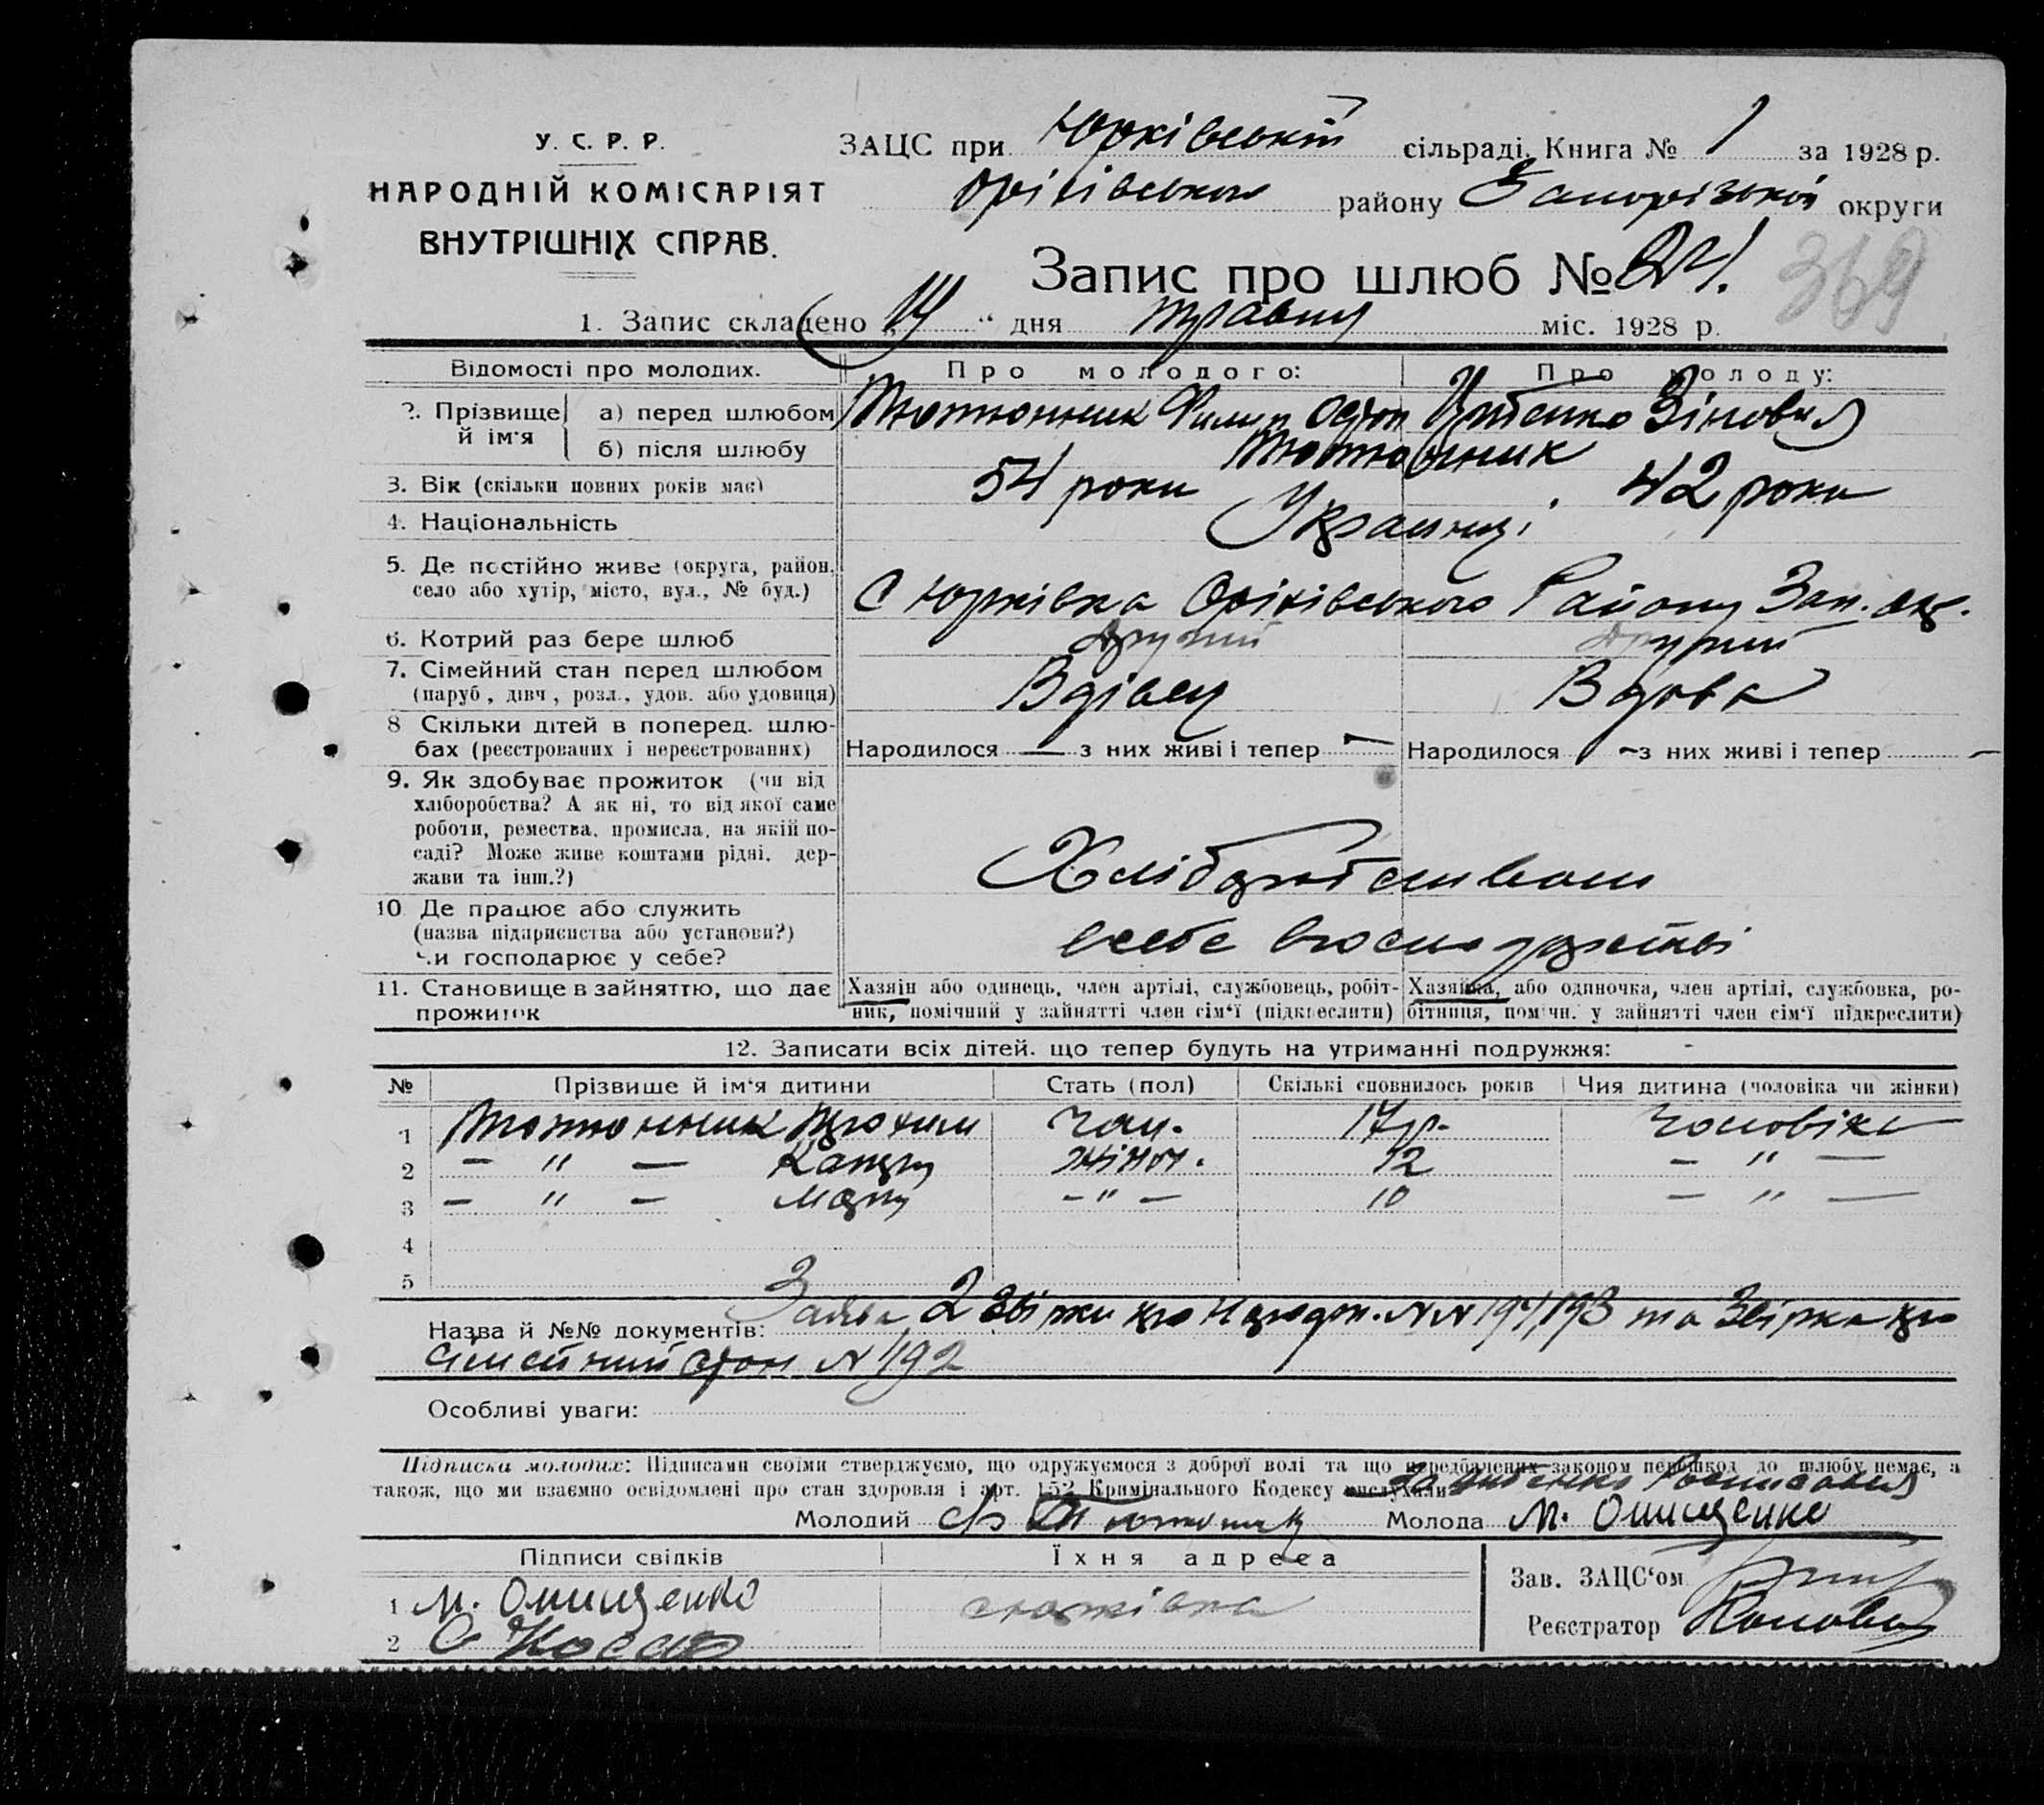 У. С. Р. Р.
НАРОДНІЙ КОМІСАРІЯТ
ВНУТРІШНІХ СПРАВ.
ЗАЦС при Юрківській сільраді. Книга № 1 за 1928 р.
Оріхівського району Запорізької округи
Запис про шлюб № 24.
369
1. Запис складено „14“ дня травня міс. 1928 р.
Відомості про молодих. Про молодого: Про молоду:
2. Прізвище й ім'я а) перед шлюбом Тютюнник Филип Остап Цибенко Зіновія
б) після шлюбу Тютюнник
3. Вік (скільки повних років має) 54 роки 42 роки
4. Національність Українці
5. Де постійно живе (округа, район,
село або хутір, місто, вул., № буд.) С Юрківка Оріхівського Району Зап. окр.
6. Котрий раз бере шлюб другий другий
7. Сімейний стан перед шлюбом
(паруб., дівч., розл., удов. або удовиця) Вдівец Вдова
8 Скільки дітей в поперед. шлю-
бах (реєстрованих і нереєстрованих) Народилося — з них живі і тепер — Народилося ~ з них живі і тепер —
9. Як здобуває прожиток (чи від
хліборобства? А як ні, то від якої саме
роботи, ремества, промисла, на якій по-
саді? Може живе коштами рідні, дер-
жави та інш.?) Хліборобством
10 Де працює або служить
(назва підприємства або установи?)
Чи господарює у себе? всебе вгосподарстві
11. Становище в зайняттю, що дає
прожиток
Хазяін або одинець, член артілі, службовець, робіт-
ник, помічний у зайнятті член сім‘ї (підкреслити)
Хазяйка, або одиночка, член артілі, службовка, ро-
бітниця, помічн. у зайнятті член сім‘ї підкреслити)
12. Записати всіх дітей, що тепер будуть на утриманні подружжя:
№ Прізвище й ім‘я дитини Стать (пол) Скількі сповнилось років Чия дитина (чоловіка чи жінки)
1 Тютюнник Трохим Чол. 17 р. Чоловіка
2 — " — Жіноч. 12 — " —
3 — " — — " — 10 — " —
4
5
Назва й №№ документів: Заява 2 Звірки про Народж. NN 194, 193 та Звірка про
сімейний стан N 192
Особливі уваги:
Підписка молодих: Підписами своїми стверджуємо, що одружуємося з доброї волі та що передбачених законом перешкод до шлюбу немає, а
також, що ми взаємно освідомлені про стан здоровля і арт. 152 Кримінального Кодексу вислухали
Молодий Ф Тютюнник Молода М. Онищенко
Підписи свідків Їхня адреса
1 М. Онищенко с Юрківка
2
Зав. ЗАЦС‘ом
Реєстратор